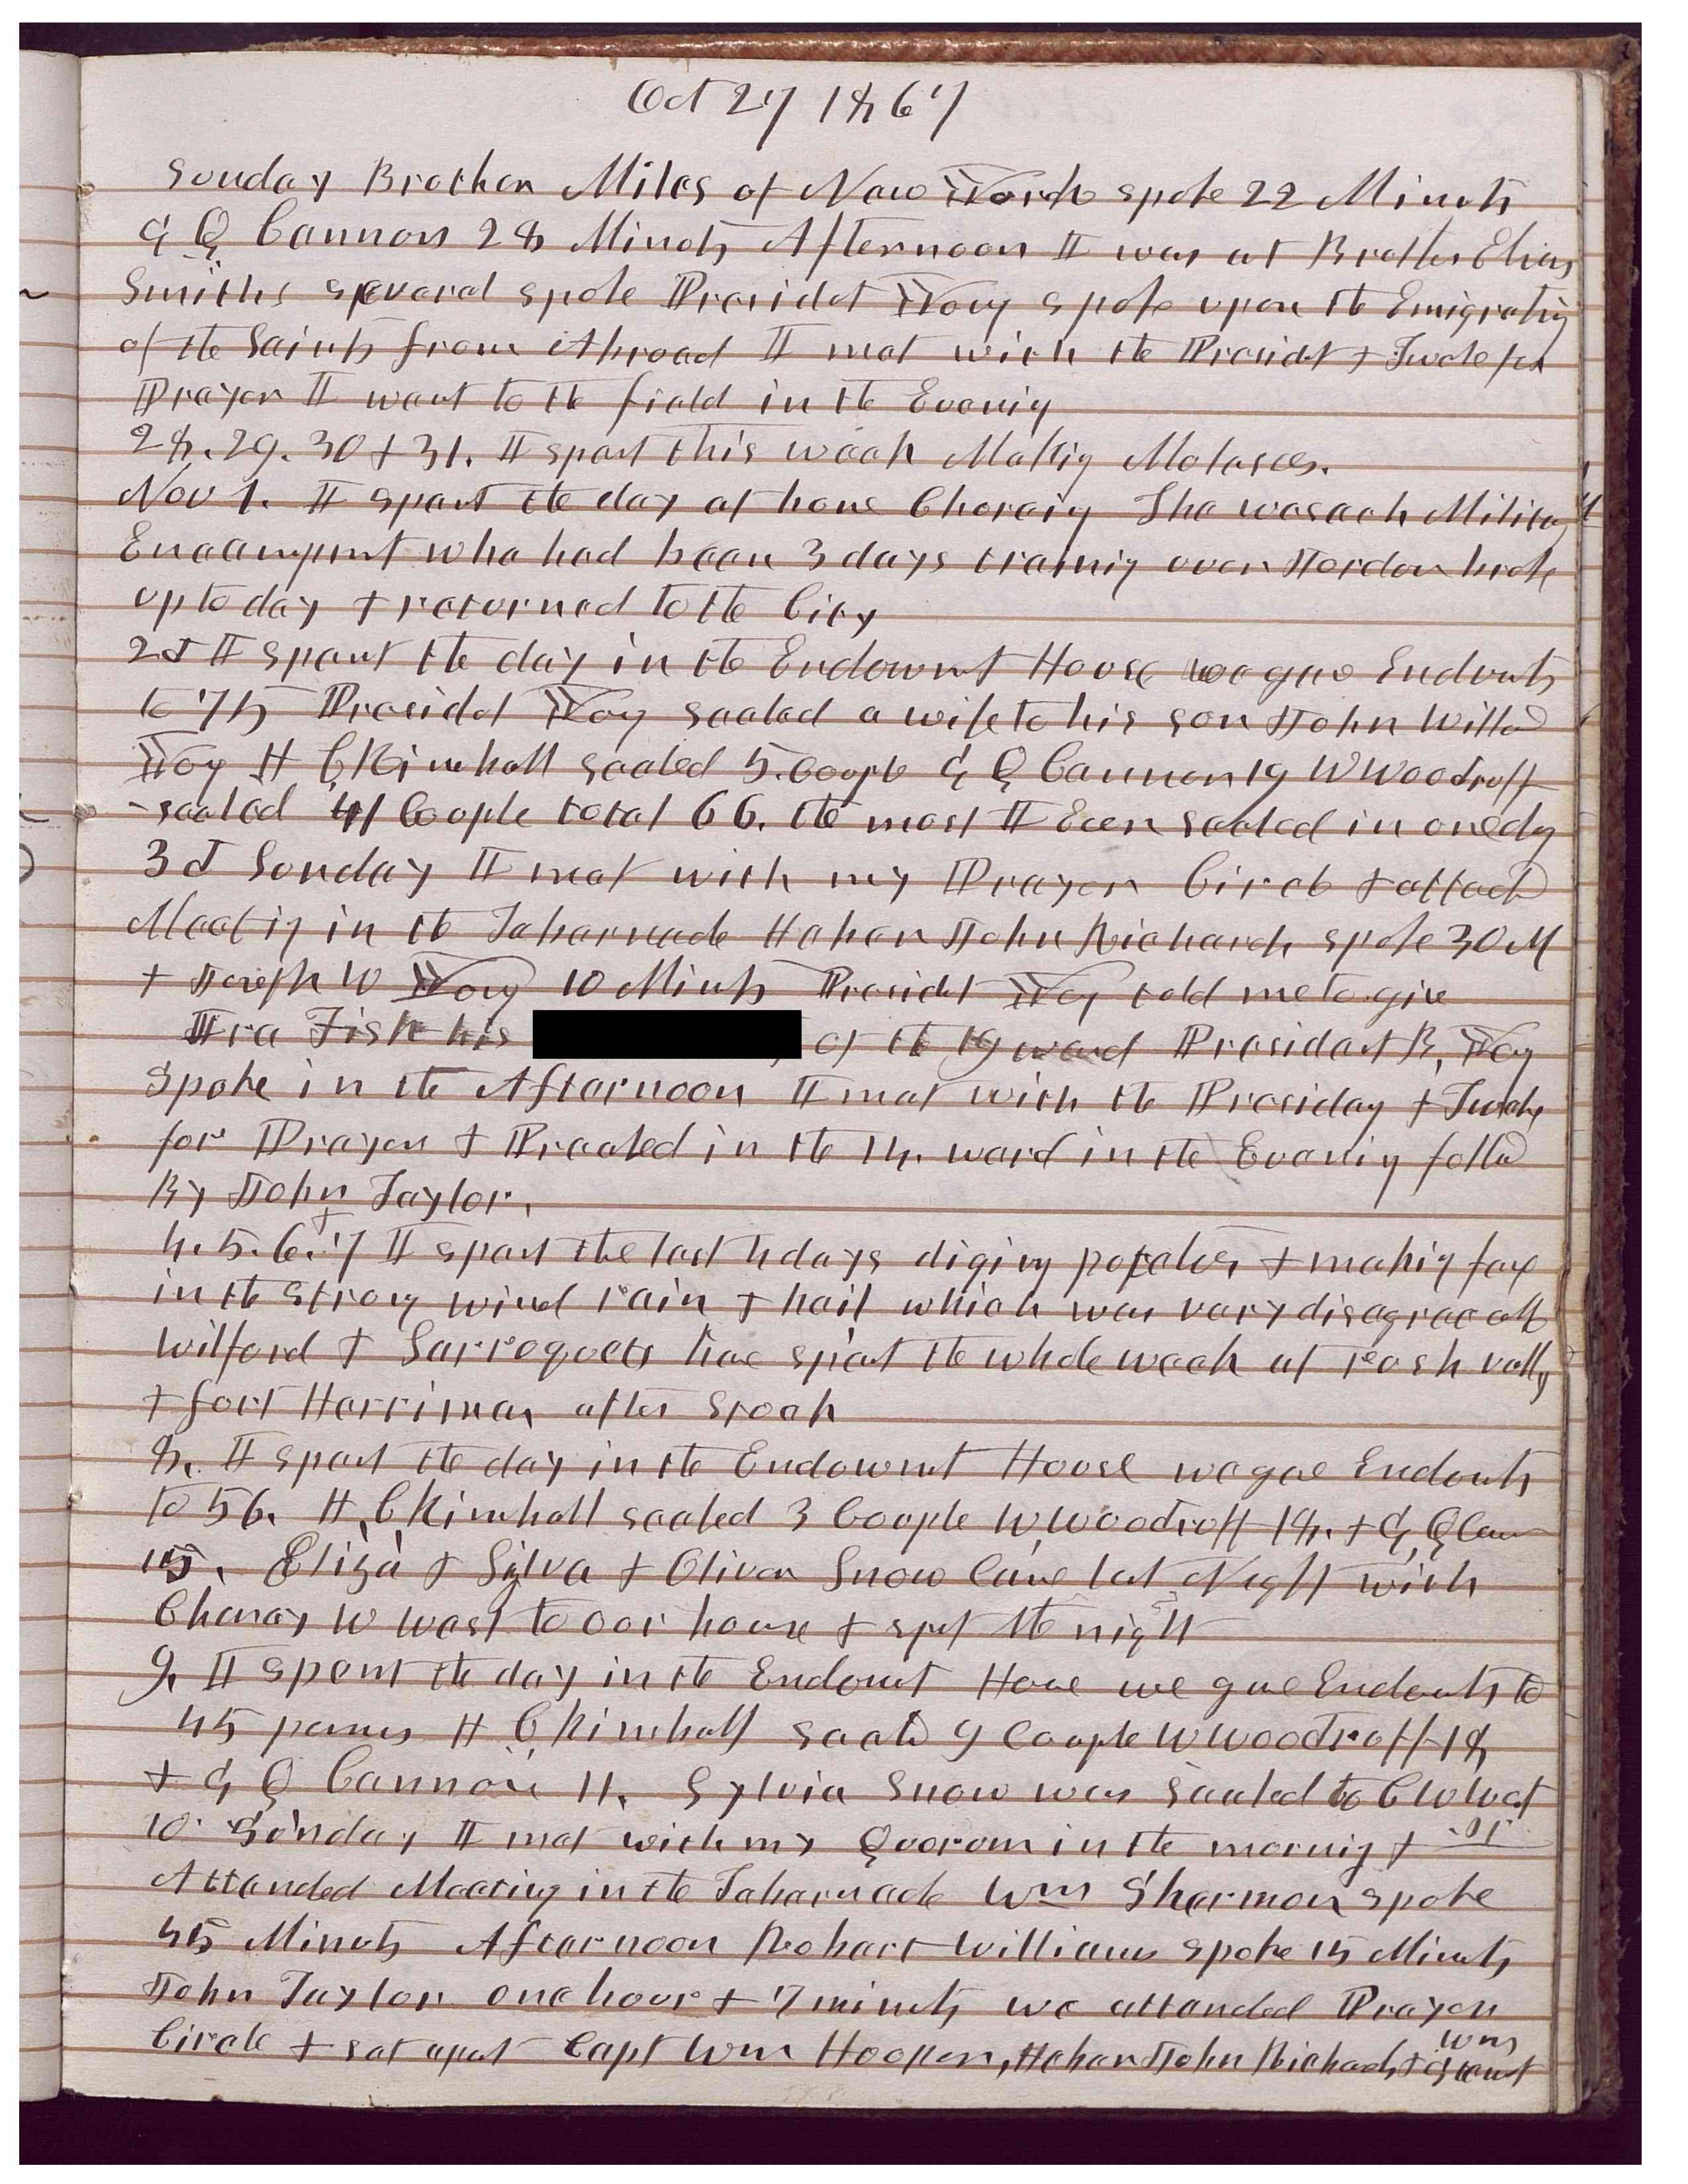 Oct 27 1867
Sunday Brother Miles of New York spoke 22 Minuts
G Q Cannon 28 Minuts Afternoon I was at Brother Elias
Smiths several spoke Presidet Young spoke upon the Emigratig
of the Saints from Abroad I met with the Presidt & Twele for
Prayer I went to the field in the Evenig
28. 29. 30 & 31. I spent this week Makig Molasses.
Nov 1. I spent the day at home Choreig The wasach Military
Encampmt who had been 3 days trainig over Jordon broke
up to day & returned to the City
2d I spent the day in the Endowmt House we gave Endowts
to 75 Presidet Young sealed a wife to his son John Willard
Young H C Kimball sealed 5. Couple G Q Cannon 19 W Woodruff
sealed 41 Couple total 66. the most I Ever sealed in one dy
3d Sunday I met with my Prayer Circle & attend
Meetig in the Tabernacle Heber John Richards spoke 30 M
& Joseph W Young 10 Minuts Presidet Young told me to give
Ira Fisk his of the 19 ward President B. Young
Spoke in the Afternoon I met with the Presidey & Twelve
for Prayer & Preached in the 14. ward in the Evenig follod
By John Taylor.
4. 5. 6. & 7 I spent the last 4 days diging potatoes & makig
in the strong wind rain & hail which was very disagreeable
Wilford & Sarroquets have spent the whole week at rush vally
& fort Harriman after Stock
8. I spent the day in the Endowmt House we gave Endowts
to 56. H. C Kimball sealed 3 Couple W Woodruff 18. & G, Q Can
15. Eliza & Sylva & Oliver Snow Came last Night with
Charley W West to our house & spet the night
9. I spent the day in the Endowmt House we gave Endowts to
45 persons H C, Kimball seald 9 Couple W Woodruff 18
& G Q Cannon 11. Sylvia Snow was Sealed to C W West
10. Sunday I met with my Quorum in the mornig &
Attended Meeting in the Tabernacle Wm Shermon spoke
45 Minuts Afternoon Robert Williams spoke 15 Minuts
John Taylor one hour & 7 minuts we attended Prayer
Circle & set apart Capt Wm Hooper, Heber John Richards & Wm Grant